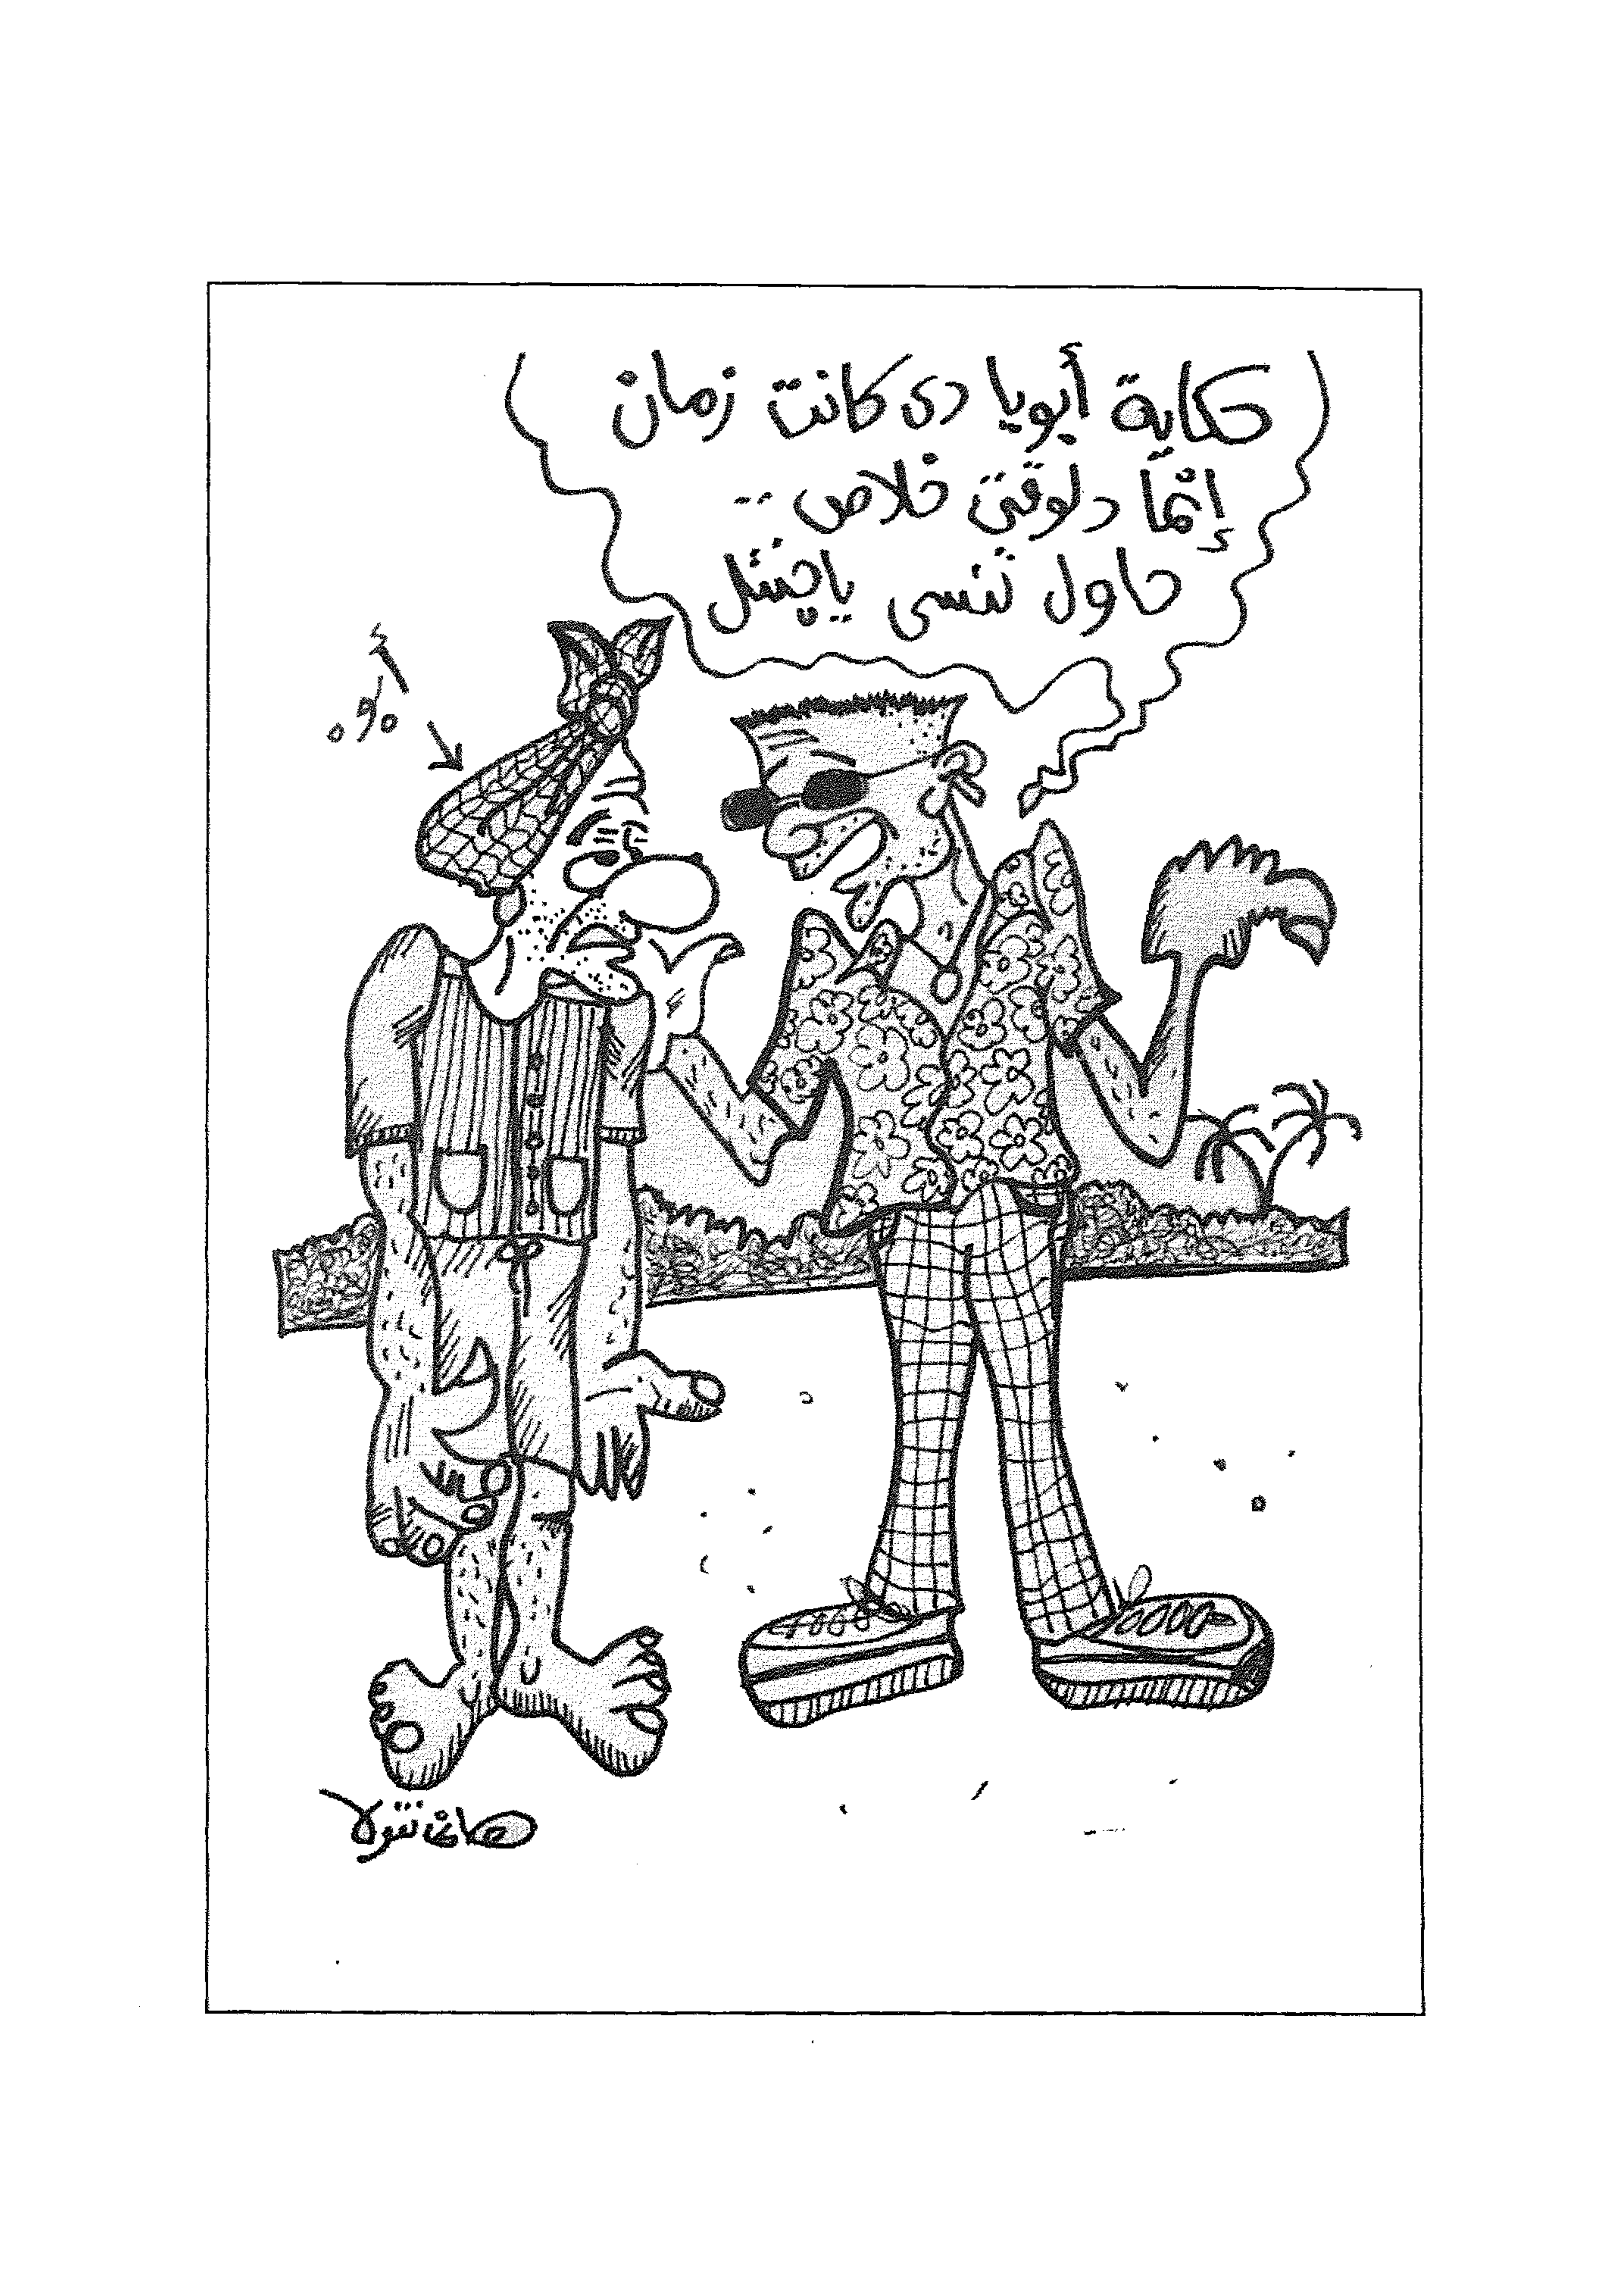 حكاية أبويا دى كانت زمان
إنما دلوقتى خلاص ..
حاول تنسى ياچنتل
أبوه